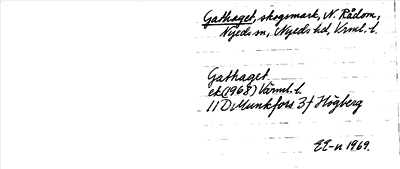 Gathaget, skogsmark, N. Rådom,
Nyeds sn, Nyeds hd, Vrml. l.
Gathaget
ek (1968) Värml. l.
11 D Munkfors 3 f Högberg
EE-n 1969.